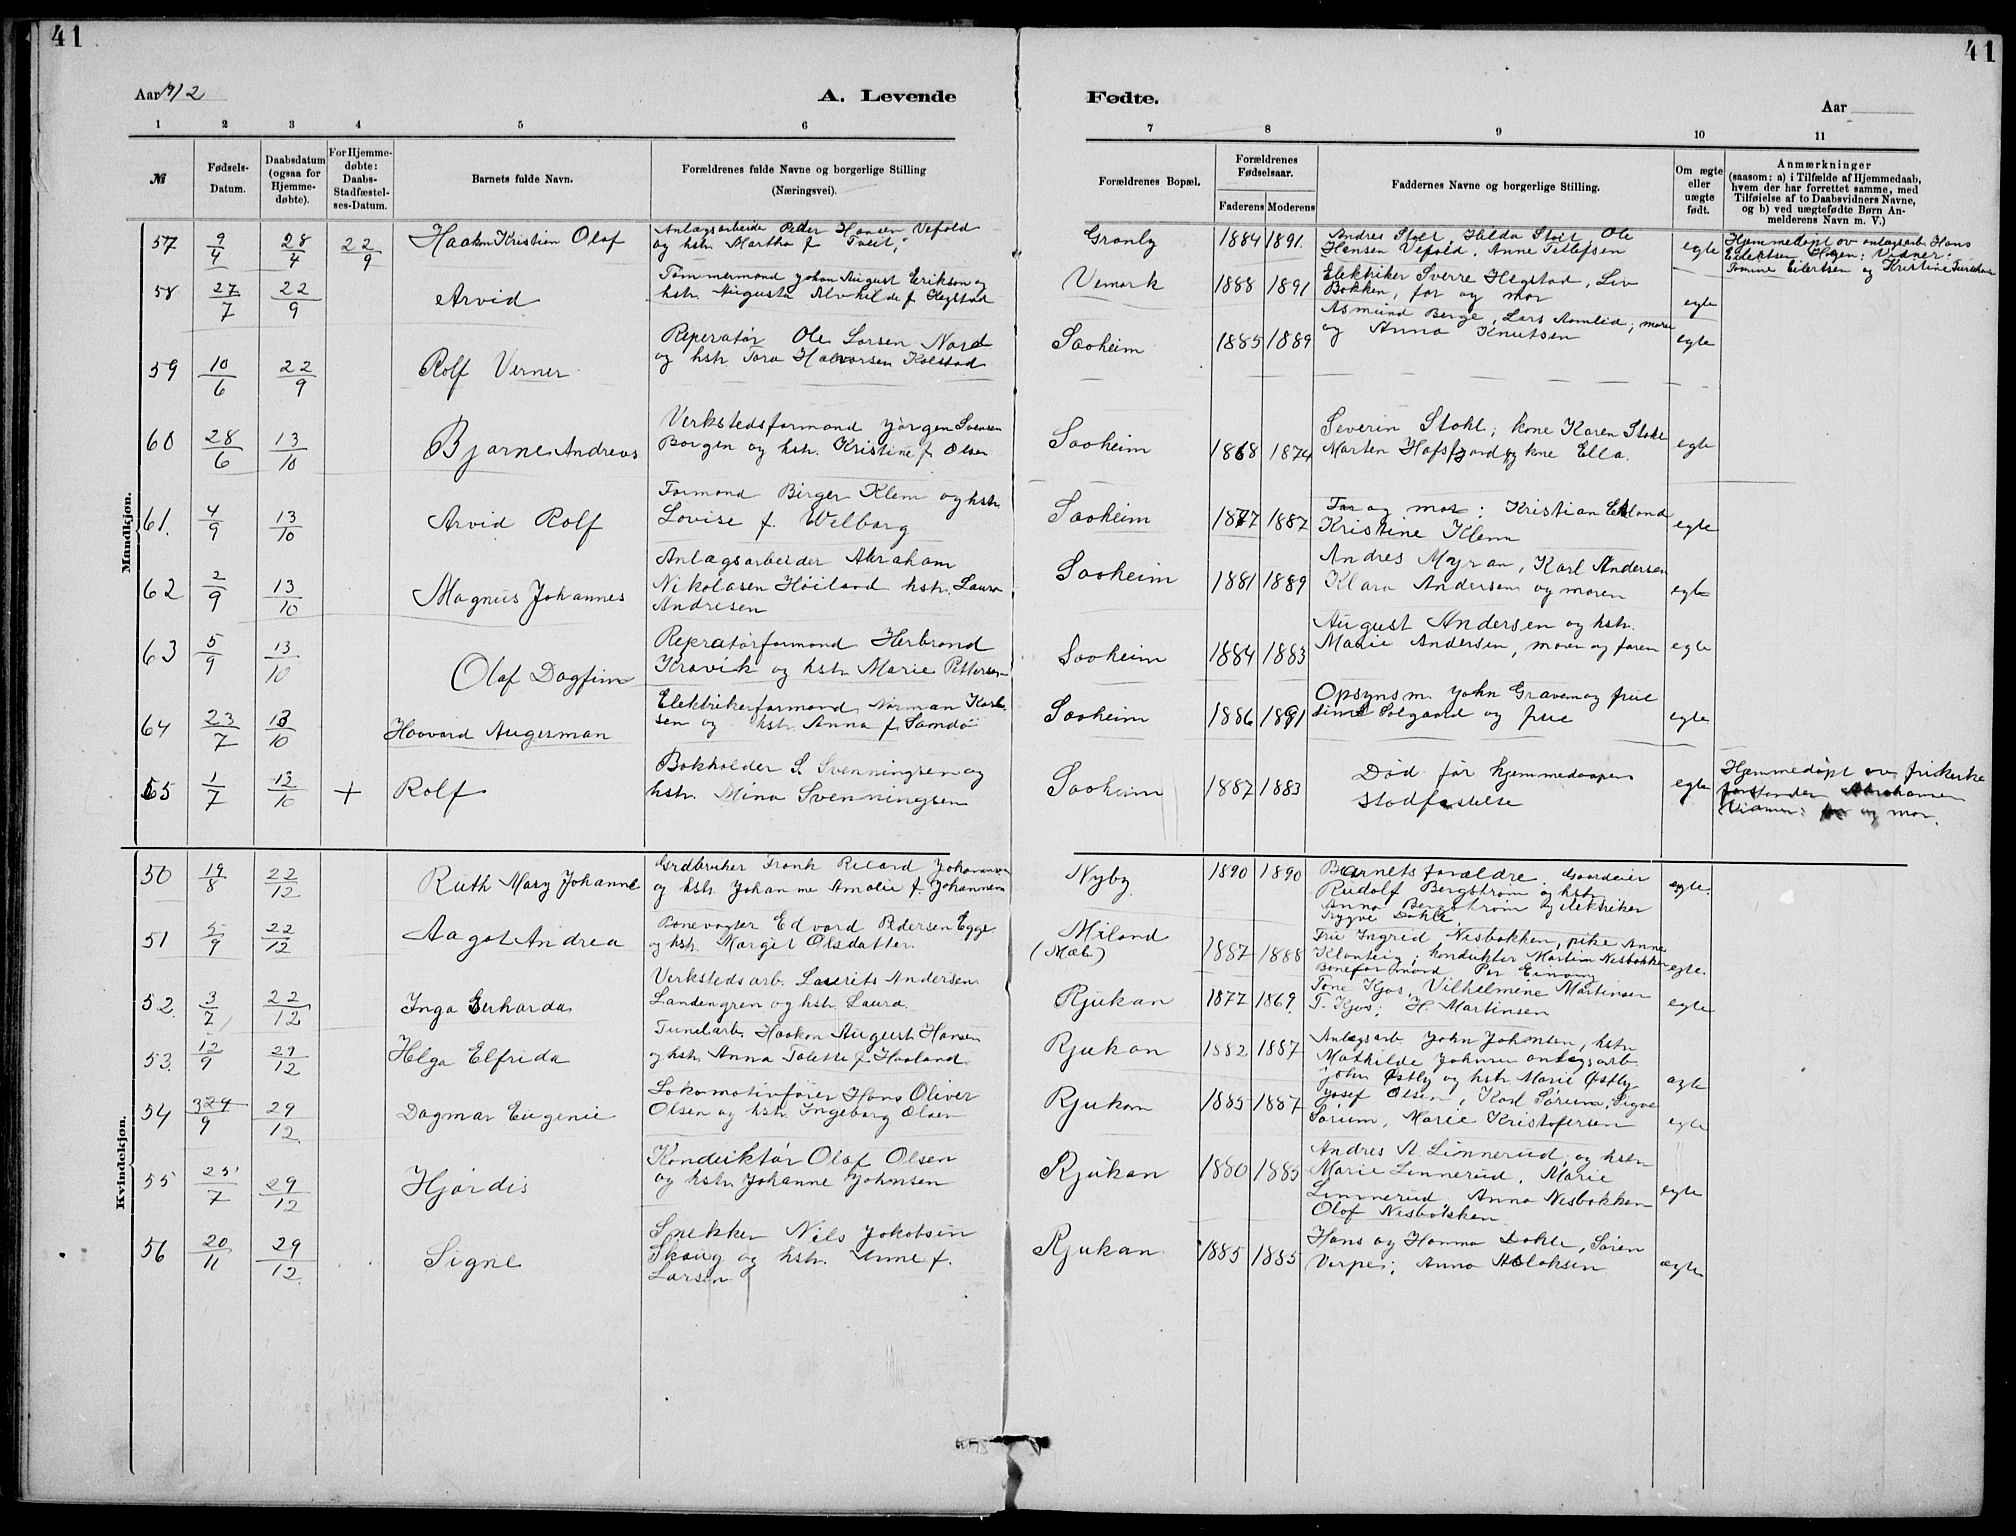 41
41
Aar 1912
A. Levende
Fødte.
Aar
1 2 3 4 5 6 7 8 9 10 11
№
Fødsels-Datum.
Daabsdatum (ogsaa for Hjemme-døbte).
For Hjemme-døbte: Daabs-Stadfæstel-ses-Datum.
Barnets fulde Navn.
Forældrenes fulde Navne og borgerlige Stilling
(Næringsvei).
Forældrenes Bopæl.
Forældrenes Fødselsaar.
Faderens Moderens
Faddernes Navne og borgerlige Stilling.
Om ægte eller uægte født.
Anmærkninger
(saasom: a) i Tilfælde af Hjemmedaab,
hvem der har forrettet samme, med
Tilføielse af to Daabsvidners Navne,
og b) ved uægtefødte Børn An-
melderens Navn m. V.)
Mandkjøn.
57 9/4 28/4 22/9 Haakon Kristian Olaf
Anlægsarbeide Peder Hansen Vefold
og hstr. Martha f. Tveit,
Granly 1884 1891.
Andres Stolt Hilda Stolt Ole
Hansen Vefold, Anne Tellefsen
egte
Hjemmedøpt av anlægsarb. Hans
Eilektsen Hagen; Vidner:
Tomine Eilertsen og Kristine
58 27/7 22/9 Arvid
Tømmermand Johan August Erikson og
hstr. Augusta Alvhilde f. Hegstad
Vemork 1888 1891
Elektriker Sverre Hegstad, Liv
Bakken, far og mor
egte
59 10/6 22/9 Rolf Verner
Reperatør Ole Larsen Nord
og hstr. Tora Halvorsen Kolstad
Saaheim 1885 1889
Asmund Berge, Lars Aamlid; mor
og Anna Knutsen
egte
60 28/6 13/10 Bjarne Andreas
Verkstedsformand Jørgen Svensen
Borgen og hstr. Kristine f. Olsen
Saaheim 1868 1874
Severin Stokl; kone Karen Stokl
Marten Hafsfjord og kne Ella.
egte
61. 4/9 13/10 Arvid Rolf
Formand Birger Klem og hstr.
Lovise f. Welborg
Saaheim 1877 1887
Far og mor: Kristian Eklond
Kristine Klem
egte
62 2/9 13/10 Magnus Johannes
Anlægsarbeider Abraham
Nikolasen Høiland hstr. Laura
Andresen
Saaheim 1881 1889
Andres Myran, Karl Andersen
Klara Andersen og moren
egte
63 5/9 13/10 Olaf Dagfinn
Repratørformand Herbrand
Kravik og hstr. Marie Pettersen
Saaheim 1884 1883
August Andersen og hstr.
Marie Andersen, moren og faren
egte
64 23/7 13/10 Haavard Augerman
Elektrikerformand Norman Karl-
sen og hstr. Anna f. Samdøi
Saaheim 1886 1891
Opsynsm. John Graven og frue
Solgaard og frue
egte
65 1/7 13/10 + Rolf
Bokholder S. Svenningsen og
hstr. Mina Svenningsen
Saaheim 1887 1883
Død før hjemmedaapens
stadfestelse
egte
Hjemmedøpt av frikirke
forstander Abrahamsen
Vidner: far og mor.
Kvindekjøn.
50 19/8 22/12 Ruth Mary Johanne
Grdbruker Frank Ricard Johannesen
og hstr Johanne Amalie f. Johannesen
Nyby 1890 1890
Barnets forældre. Gaardeier
Rudolf Bergstrøm og hstr
Anna Bergstrøm og elektriker
Trygve Dahle
egte.
51 5/9 22/12 Aagot Andrea
Banevogter Edvard Pedersen Egge
og hstr. Margit Olsdatter.
Miland
(Mæl) 1887 1888
Fru Ingrid Nisbakken, pike Anne
Klonteig; konduktør Martin Nisbakken
Baneformand Per Einong
egte.
52. 3/7 22/12 Inga Gerharda
Verkstedsarb. Laurits Andersen
Landengren og hstr. Laura.
Rjukan 1877 1869.
Tone Kjos, Vilhelmine Martinsen
T. Kjos; H. Martinsen
egte
53. 12/9 29/12 Helga Elfrida
Tunelarb. Haakon August Hansen
og hstr. Anna Talette f. Haaland
Rjukan 1882 1887
Anlægsarb John Johnsen, hstr
Mathilde Johnsen anlægsarb.
John Østby og hstr Marie Østby
ægte
54 29/9 29/12 Dagmar Eugenie
Lokomotivfører Hans Oliver
Olsen og hstr. Ingeborg Olsen
Rjukan 1885 1887
Josef Olsen, Karl Sørum, Signe
Sørum, Marie Kristofersen
egte
55 25/7 29/12 Hjørdis
Konduktør Olaf Olsen
og hstr. Johanne Johnsen
Rjukan 1880 1885
Andres A. Linnerud, og hstr
Marie Linnerud, Marie
Linnerud, Anna Nesbakken
Olaf Nesbakken
egte
56 20/11 29/12 Signe
Snekker Nils Jakobsen
Skaug og hstr. Anne f.
Larsen
Rjukan 1885 1885
Hans og Hanna Dahle, Søren
Verpe; Anna Aslaksen
ægte